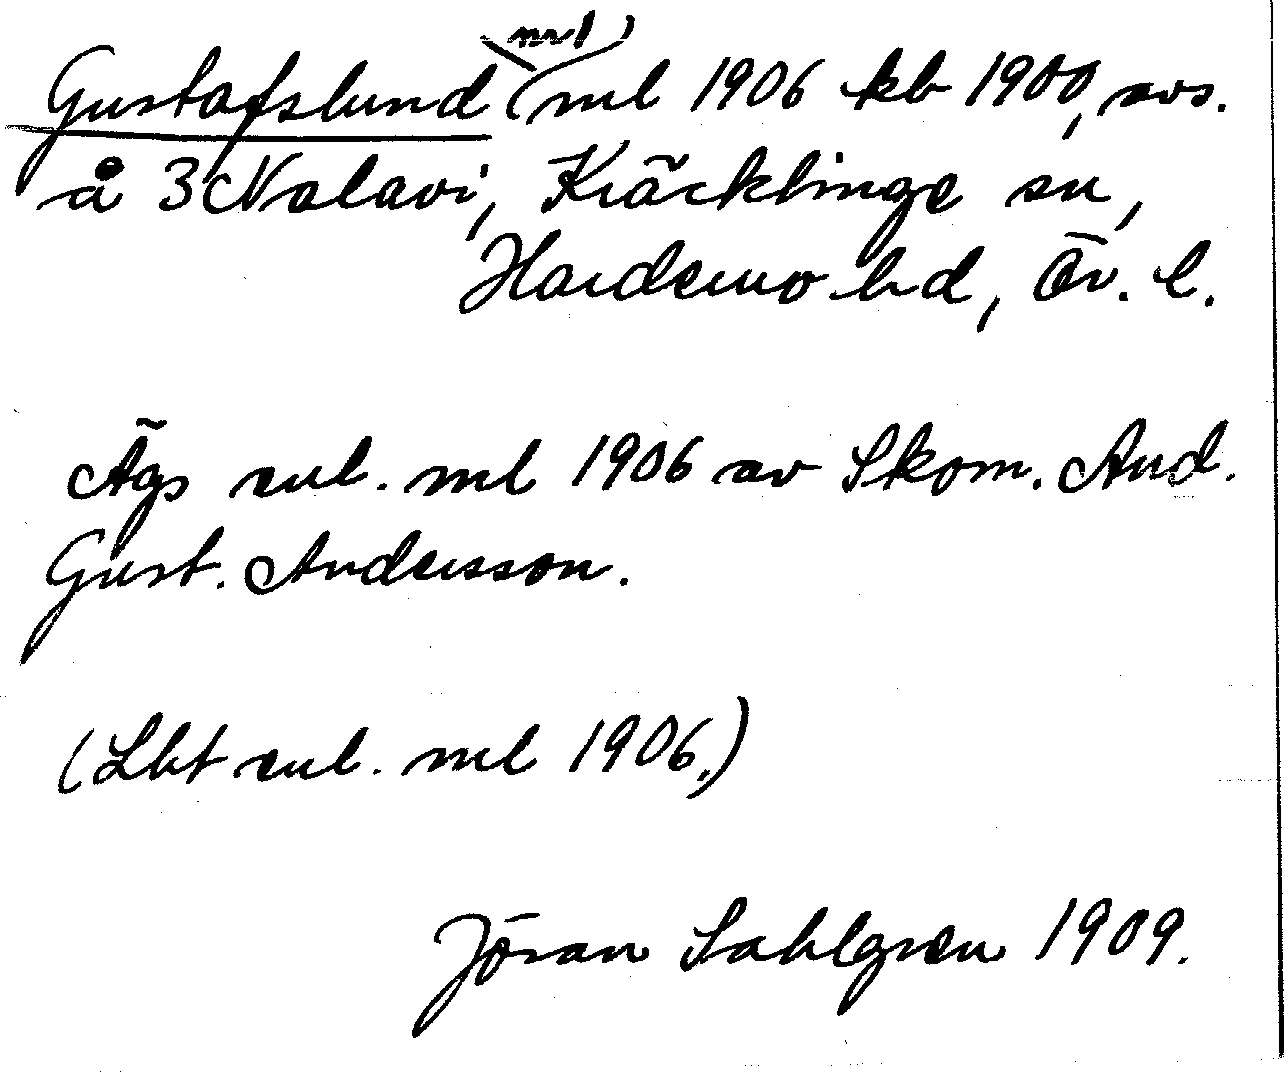 Gustafslund (nr 1) (ml 1906 kb 1900, avs.
å 3 Nalavi, Kräcklinge sn,
Hardemo hd, Ör. l.
Ägs enl. ml 1906 av Skom. And.
Gust. Andersson.
(Lht enl. ml 1906.)
Jöran Sahlgren 1909.